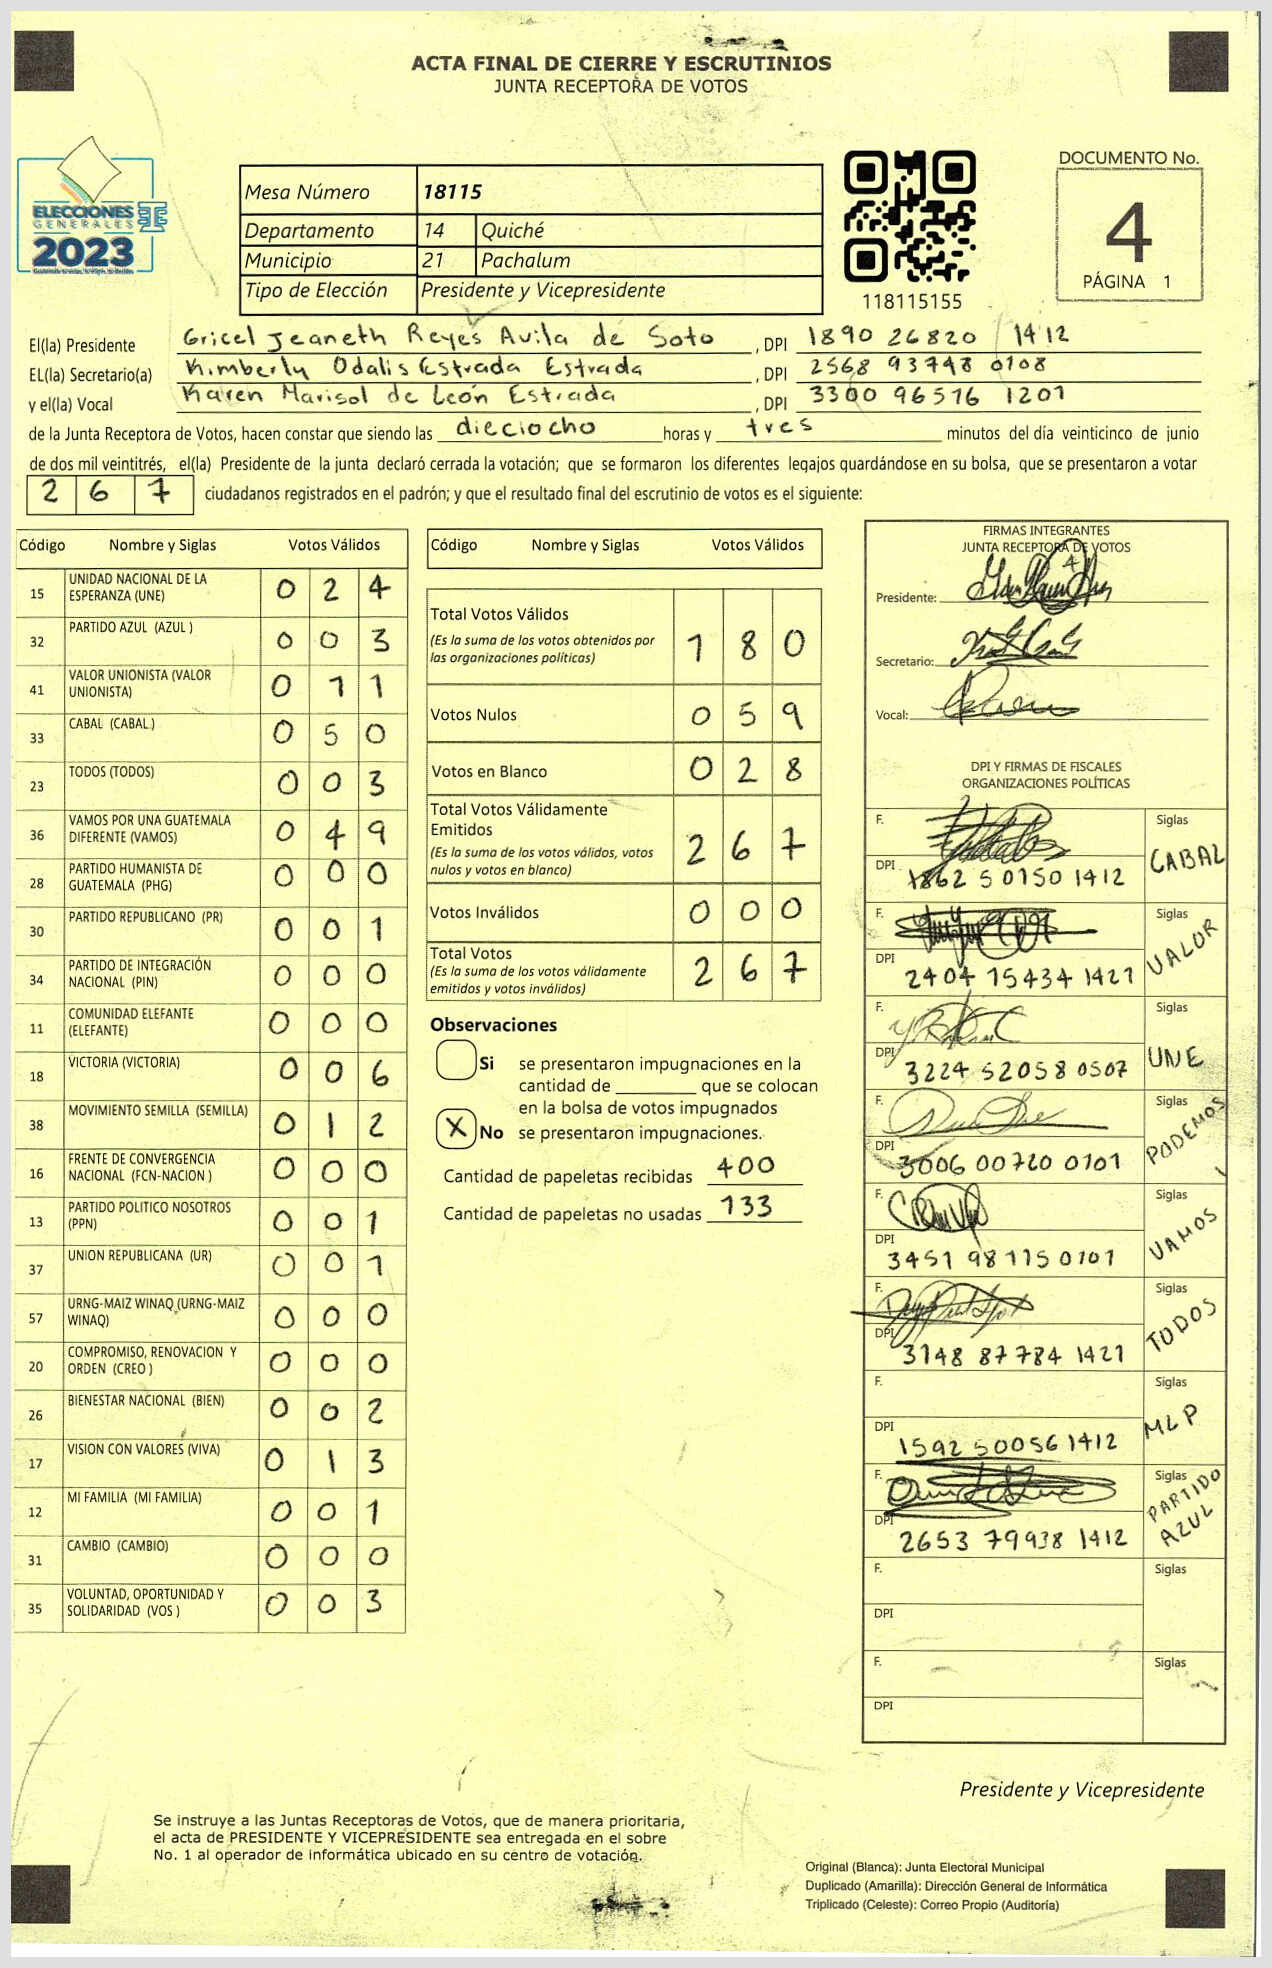 ACTA FINAL DE CIERRE Y ESCRUTINIOS
JUNTA RECEPTORA DE VOTOS
ELECCIONES
GENERALES
2023
Mesa Número 18115
Departamento 14 Quiché
Municipio 21 Pachalum
Tipo de Elección Presidente y Vicepresidente
118115155
DOCUMENTO No.
4
PÁGINA 1
El(la) Presidente Gricel Jeaneth Reyes Avila de Soto, DPI 1890 26820 1412
EL(la) Secretario(a) Kimberly Odalis Estrada Estrada, DPI 2568 93748 0108
y el(la) Vocal Karen Marisol de León Estrada, DPI 3300 96516 1201
de la Junta Receptora de Votos, hacen constar que siendo las dieciocho horas y tres minutos del día veinticinco de junio
de dos mil veintitrés, el(la) Presidente de la junta declaró cerrada la votación; que se formaron los diferentes legajos guardándose en su bolsa, que se presentaron a votar
267 ciudadanos registrados en el padrón; y que el resultado final del escrutinio de votos es el siguiente:
Código Nombre y Siglas Votos Válidos
15 UNIDAD NACIONAL DE LA ESPERANZA (UNE) 024
32 PARTIDO AZUL (AZUL ) 003
41 VALOR UNIONISTA (VALOR UNIONISTA) 011
33 CABAL (CABAL) 050
23 TODOS (TODOS) 003
36 VAMOS POR UNA GUATEMALA DIFERENTE (VAMOS) 049
28 PARTIDO HUMANISTA DE GUATEMALA (PHG) 000
30 PARTIDO REPUBLICANO (PR) 001
34 PARTIDO DE INTEGRACIÓN NACIONAL (PIN) 000
11 COMUNIDAD ELEFANTE (ELEFANTE) 000
18 VICTORIA (VICTORIA) 006
38 MOVIMIENTO SEMILLA (SEMILLA) 012
16 FRENTE DE CONVERGENCIA NACIONAL (FCN-NACION ) 000
13 PARTIDO POLITICO NOSOTROS (PPN) 001
37 UNION REPUBLICANA (UR) 001
57 URNG-MAIZ WINAQ (URNG-MAIZ WINAQ) 000
20 COMPROMISO, RENOVACION Y ORDEN (CREO ) 000
26 BIENESTAR NACIONAL (BIEN) 002
17 VISION CON VALORES (VIVA) 013
12 MI FAMILIA (MI FAMILIA) 001
31 CAMBIO (CAMBIO) 000
35 VOLUNTAD, OPORTUNIDAD Y SOLIDARIDAD (VOS ) 003
Código Nombre y Siglas Votos Válidos
Total Votos Válidos 180
(Es la suma de los votos obtenidos por las organizaciones políticas)
Votos Nulos 059
Votos en Blanco 028
Total Votos Válidamente Emitidos 267
(Es la suma de los votos válidos, votos nulos y votos en blanco)
Votos Inválidos 000
Total Votos 267
(Es la suma de los votos válidamente emitidos y votos inválidos)
Observaciones
Si se presentaron impugnaciones en la
cantidad de ________ que se colocan
en la bolsa de votos impugnados
X No se presentaron impugnaciones.
Cantidad de papeletas recibidas 400
Cantidad de papeletas no usadas 133
FIRMAS INTEGRANTES
JUNTA RECEPTORA DE VOTOS
Presidente:
Secretario:
Vocal:
DPI Y FIRMAS DE FISCALES
ORGANIZACIONES POLÍTICAS
F. Siglas CABAL
DPI 1862 50150 1412
F. Siglas VALOR
DPI 2404 15434 1421
F. Siglas UNE
DPI 3224 52058 0507
F. Siglas PODEMOS
DPI 3006 00720 0101
F. Siglas VAMOS
DPI 3451 98115 0101
F. Siglas TODOS
DPI 3148 87784 1421
F. Siglas MLP
DPI 1592 50056 1412
F. Siglas PARTIDO AZUL
DPI 2653 79938 1412
F. Siglas
DPI
F. Siglas
DPI
Presidente y Vicepresidente
Se instruye a las Juntas Receptoras de Votos, que de manera prioritaria,
el acta de PRESIDENTE Y VICEPRESIDENTE sea entregada en el sobre
No. 1 al operador de informática ubicado en su centro de votación.
Original (Blanca): Junta Electoral Municipal
Duplicado (Amarilla): Dirección General de Informática
Triplicado (Celeste): Correo Propio (Auditoría)